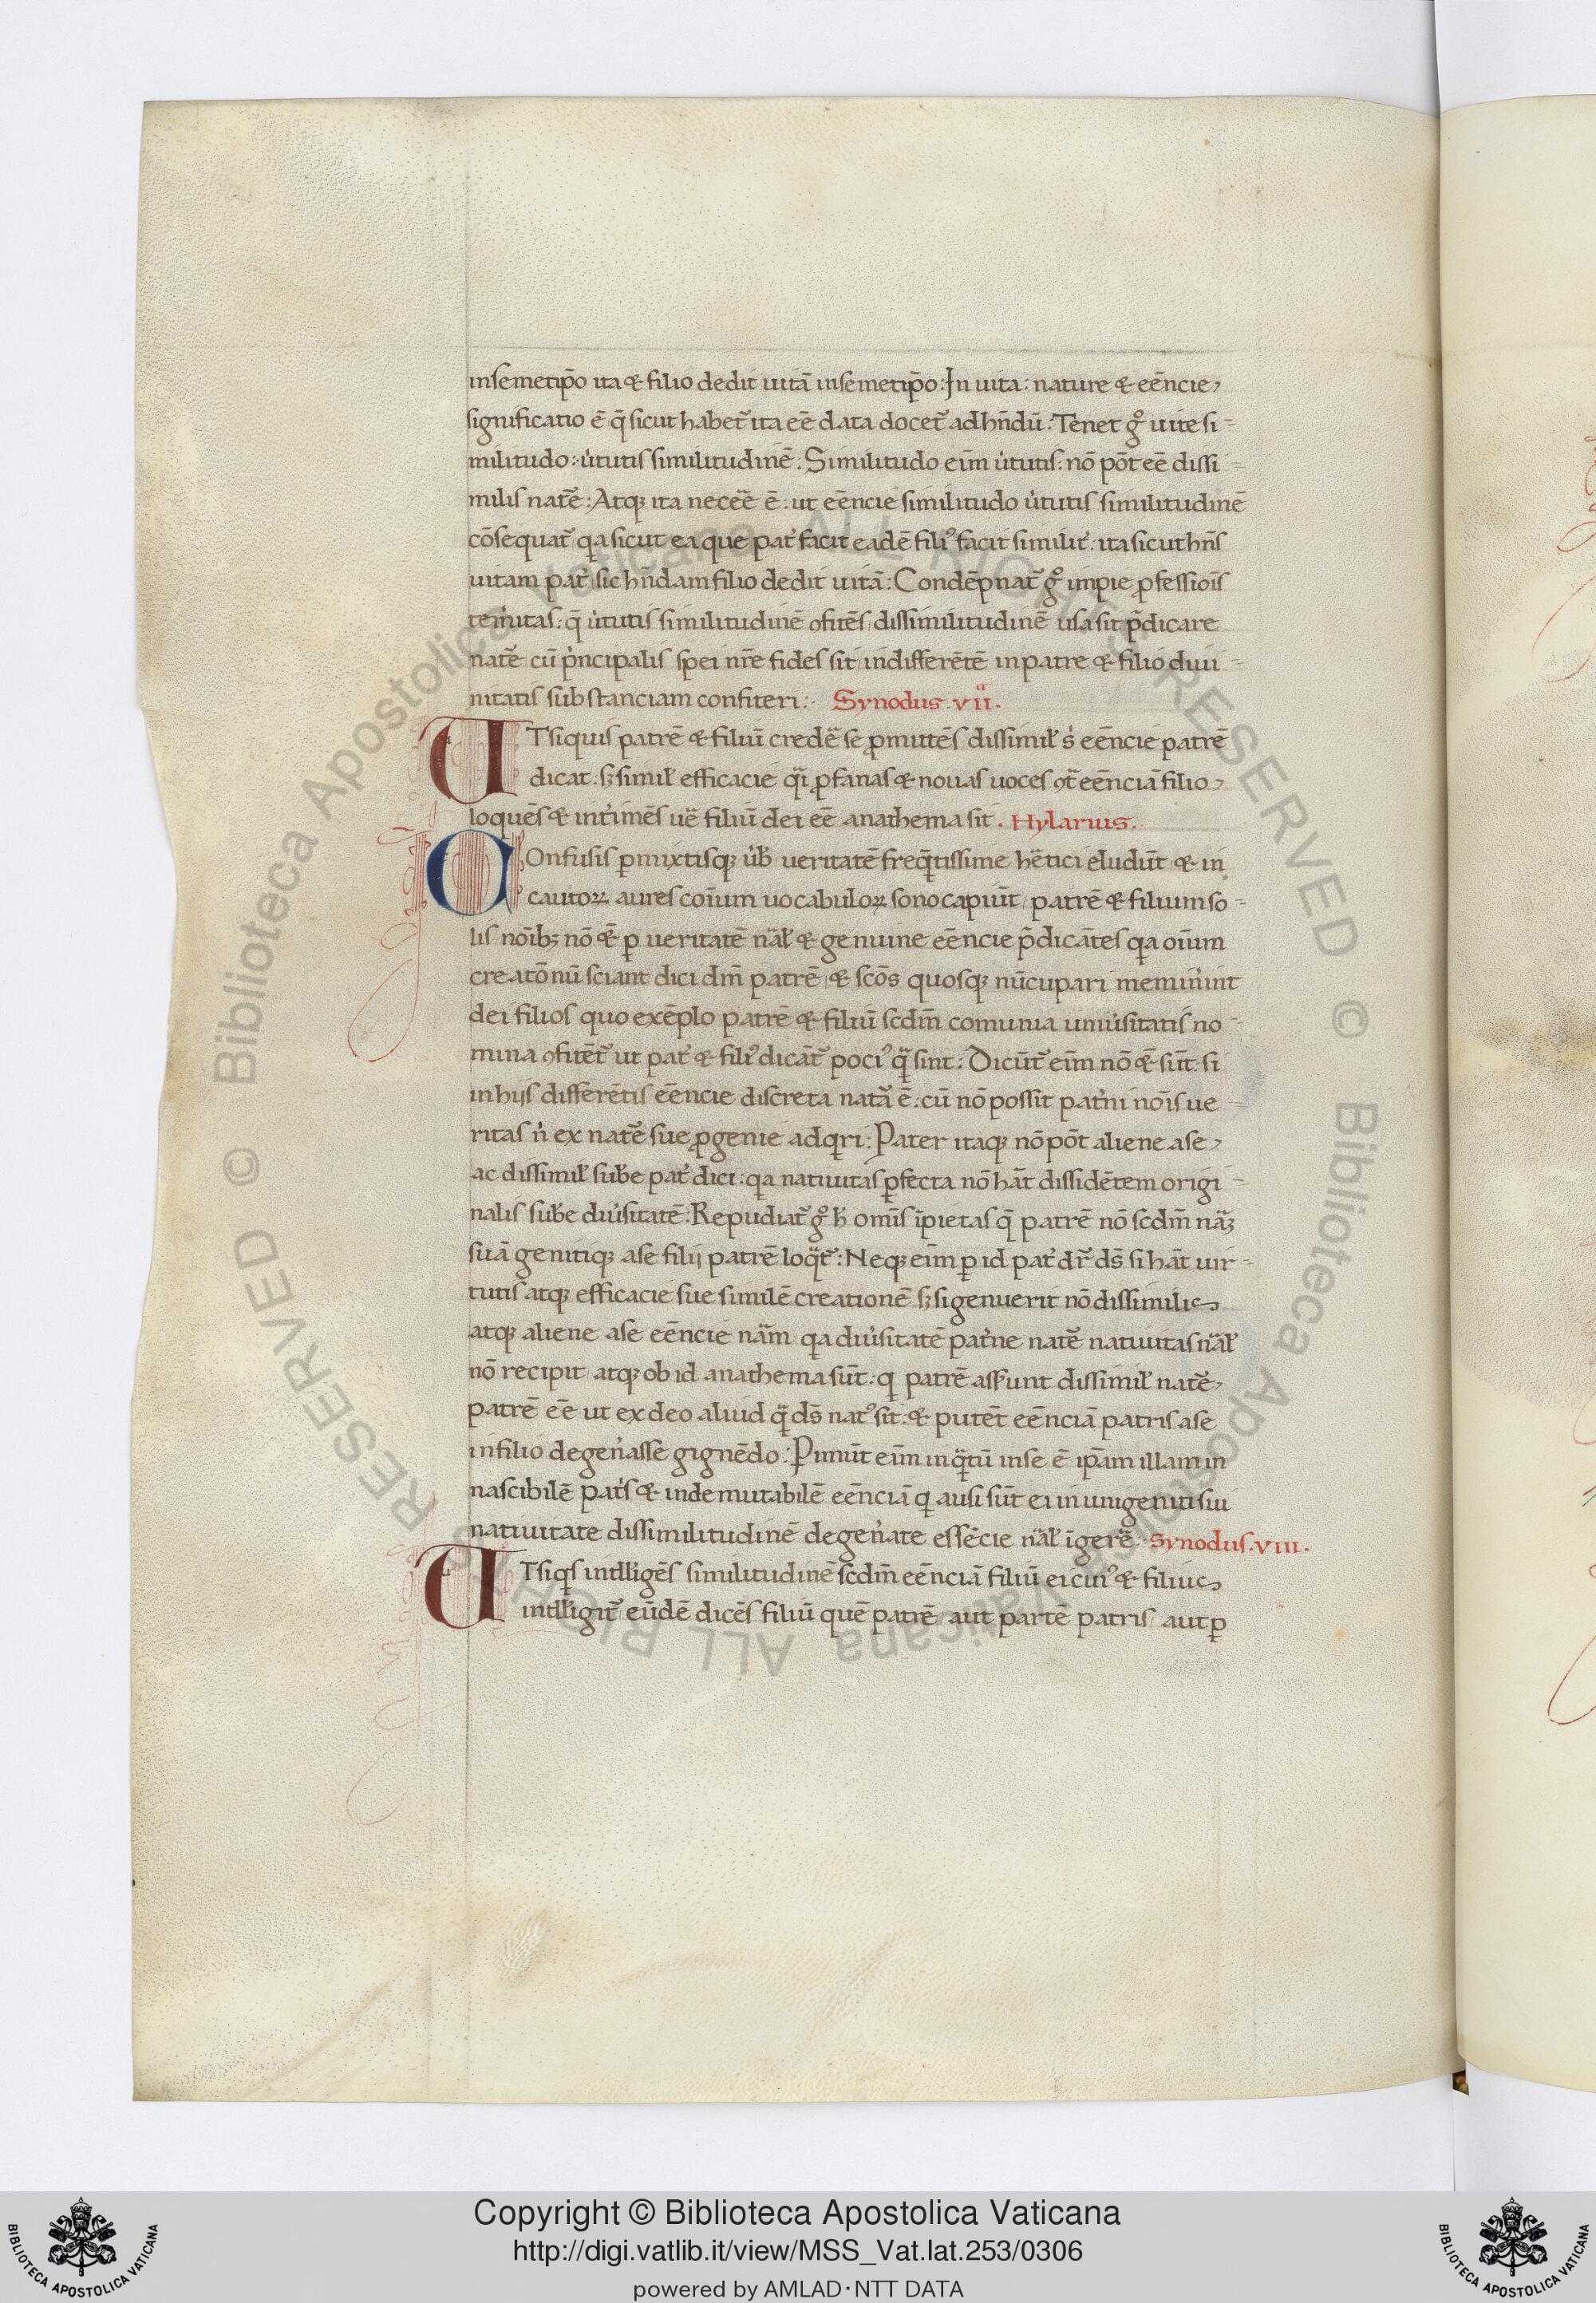 insemetip̄o ita & filio dedit uitā insemetip̄o: In uita: nature & eēncie
significatio ē q̄ sicut habet᷑ ita eē data docet᷑ adhn̄dū: Tenet gͦ uite si-
militudo: u̓tutis similitudinē. Similitudo eīm u̓tutis: nō pōt eē dissi-
milis nat᷑e: Atq; ita necēe ē: ut eēncie similitudo u̓tutis similitudinē
cōsequat᷑ qa sicut ea que pat̓ facit eadē fili᷒ facit similit̓. ita sicut hn̄s
uitam pat̓ sic hn̄dam filio dedit uitā: Condēpnat᷑ gͦ impie ꝓfessiōīs
tem̓itas: q̄ u̓tutis similitudinē ꝯfitēs dissimilitudinē usa sit p̄dicare
nat᷑e cū p̓ncipalis spei nr̄e fides sit indifferētē in patre & filio diui-
nitatis substanciam confiteri: Synodus .vii.ͣ
UTsiquis patrē & filiū crede᷑ se ꝓmittēs dissimil̓ s̓ eēncie patrē
dicat. sꝫ simil̓ efficacie qͣi ꝓfanas & nouas uoces ꝯͣt eēnciā filio
loquēs & int̓imēs ue᷑ filiū dei eē anathema sit. Hylarius.
COnfusis ꝑmixtisq; u̓b̓ veritatē freq̄ntissime he᷑tici eludūt & in
cautoꝝ aures coīum uocabuloꝝ sono capiūt patrē & filium so-
lis noībꝫ nō &̄ ꝑ veritatē nāl̓ & genuine eēncie p̄dicātes qa oīum
creatōnū sciant dici dm̄ patrē & scōs quosq; nūcupari memin̓int
dei filios quo exēplo patrē & filiū scdm̄ comunia uniu̓sitatis no-
mina ꝯfitēt᷑ ut pat̓ & fili᷒ dicāt᷑ poci᷒ qͣ sint: Dicūt᷑ eīm nō &̄ sūt. si
in hijs differētis eēncie discreta nat᷑a ē. cū nō possit pat̓ni noīs ue-
ritas n̓ ex nat᷑e sue ꝓgenie adqri: Pater itaq; nō pōt aliene ase
ac dissimil̓ sub̓e pat̓ dici: qa natiuitas ꝑfecta nō hāt dissidētem origi-
nalis sub̓e diu̓sitatē: Repudiat᷑ gͦ h̓ omīs īpietas q̄ patrē nō scdm̄ nāꝫ
suā genitiq; ase filij patrē loqͣt᷑: Neq; eīm ꝑ id pat̓ dr̄ ds̄ si hāt uir-
tutis atq; efficacie sue similē creationē sꝫ si genuerit nō dissimilis
atq; aliene ase eēncie nām qa diu̓sitatē pat̓ne nat᷑e natiuitas nāl̓
nō recipit atq; ob id anathema sūt: q patrē asserunt dissimil̓ nat᷑e
patrē eē ut ex deo aliud qͣ ds̄ nat᷒ sit: & putēt eēnciā patris ase
in filio degen̓asse gignēdo: Pimūt eīm inqͣtū inse ē ip̄am illam in
nascibilē pat̓s & indemutabilē eēnciā q ausi sūt ei in unigeniti sui
natiuitate dissimilitudinē degen̓ate essēcie nāl̓ īgere᷑ Synodus .VIII.
UTsiqs intll̓igēs similitudinē scdm̄ eēnciā filiū ei cui᷒ & filius
intll̓igit᷑ eūdē dicēs filiū quē patrē aut partē patris aut ꝑ
Copyright © Biblioteca Apostolica Vaticana
http://digi.vatlib.it/view/MSS_Vat.lat.253/0306
powered by AMLAD·NTT DATA